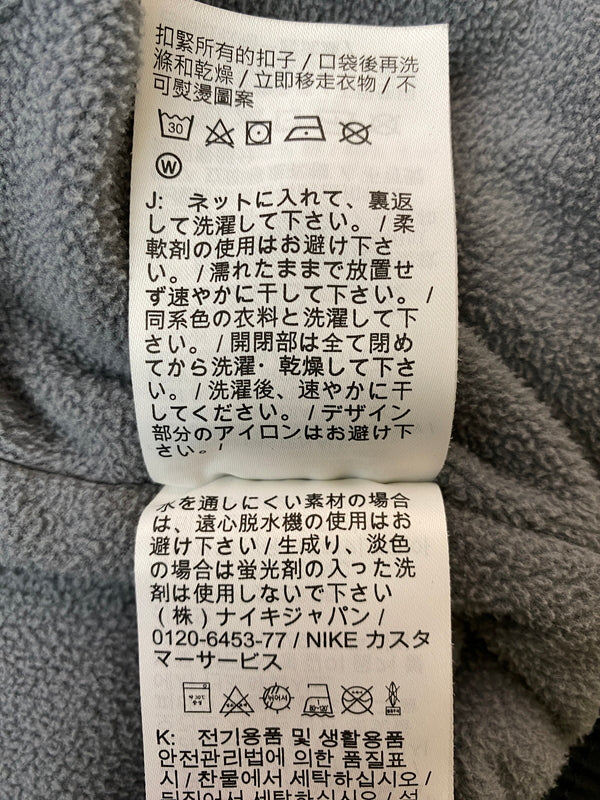 扣緊所有的扣子 / 口袋後再洗
滌和乾燥 / 立即移走衣物 / 不
可熨燙圖案
30
W
J: ネットに入れて、裏返
して洗濯して下さい。 / 柔
軟剤の使用はお避け下さ
い。 / 濡れたままで放置せ
ず速やかに干して下さい。 /
同系色の衣料と洗濯して下
さい。 / 開閉部は全て閉め
てから洗濯・乾燥して下さ
い。 / 洗濯後、速やかに干
してください。 / デザイン
部分のアイロンはお避け下
さい。/
水を通しにくい素材の場合
は、遠心脱水機の使用はお
避け下さい / 生成り、淡色
の場合は蛍光剤の入った洗
剤は使用しないで下さい
(株) ナイキジャパン /
0120-6453-77 / NIKE カスタ
マーサービス
80~120℃
K: 전기용품 및 생활용품
안전관리법에 의한 품질표
시 / 찬물에서 세탁하십시오 /
뒤집어서 세탁하십시오 /